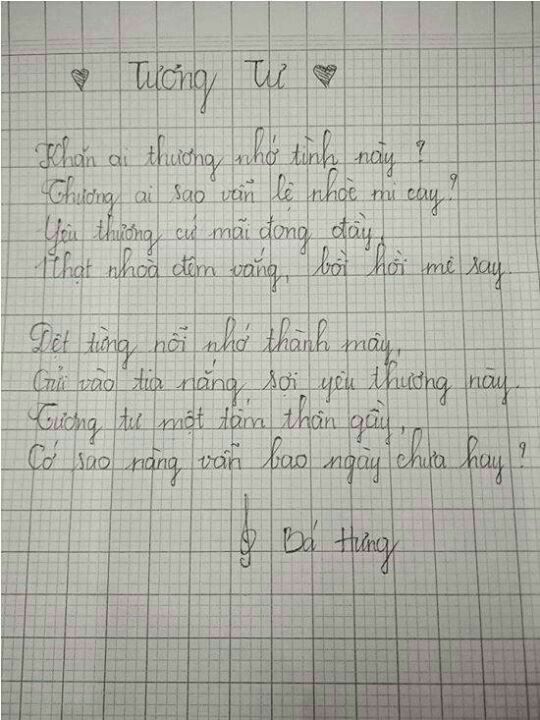 Tương Tư
Khăn ai thương nhớ tình này ?
Thương ai sao vẫn lệ nhoè mi cay ?
Yêu thương cứ mãi đọng đầy,
Nhạt nhoà đêm vắng, bồi hồi mê say.
Dệt từng nỗi nhớ thành mây,
Gửi vào tia nắng sợi yêu thương này.
Tương tư một tấm thân gầy,
Cớ sao nàng vẫn bao ngày chưa hay ?
Bá Hưng